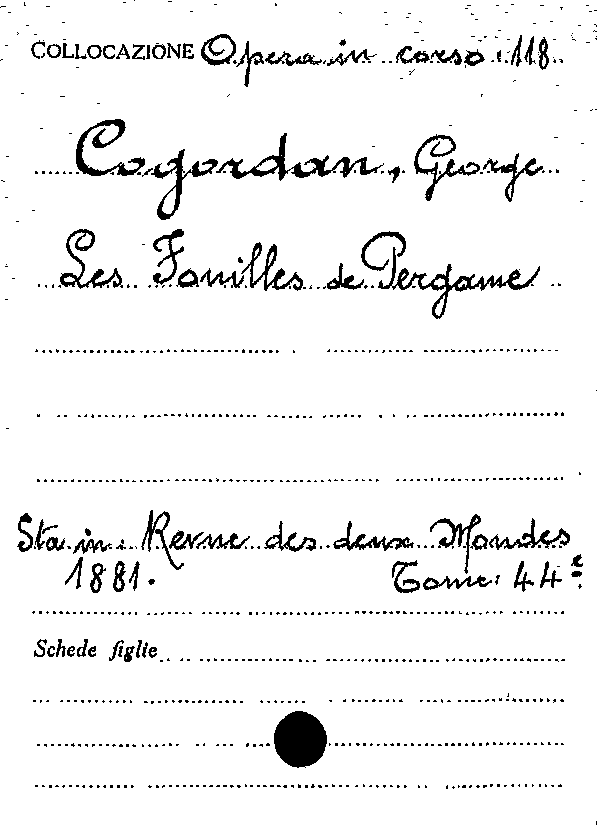 COLLOCAZIONE Opera in corso: 118
Cogordan, George
Les Fouilles de Pergame
Sta in: Revue des deux Mondes
1881. Tome: 44e
Schede figlie